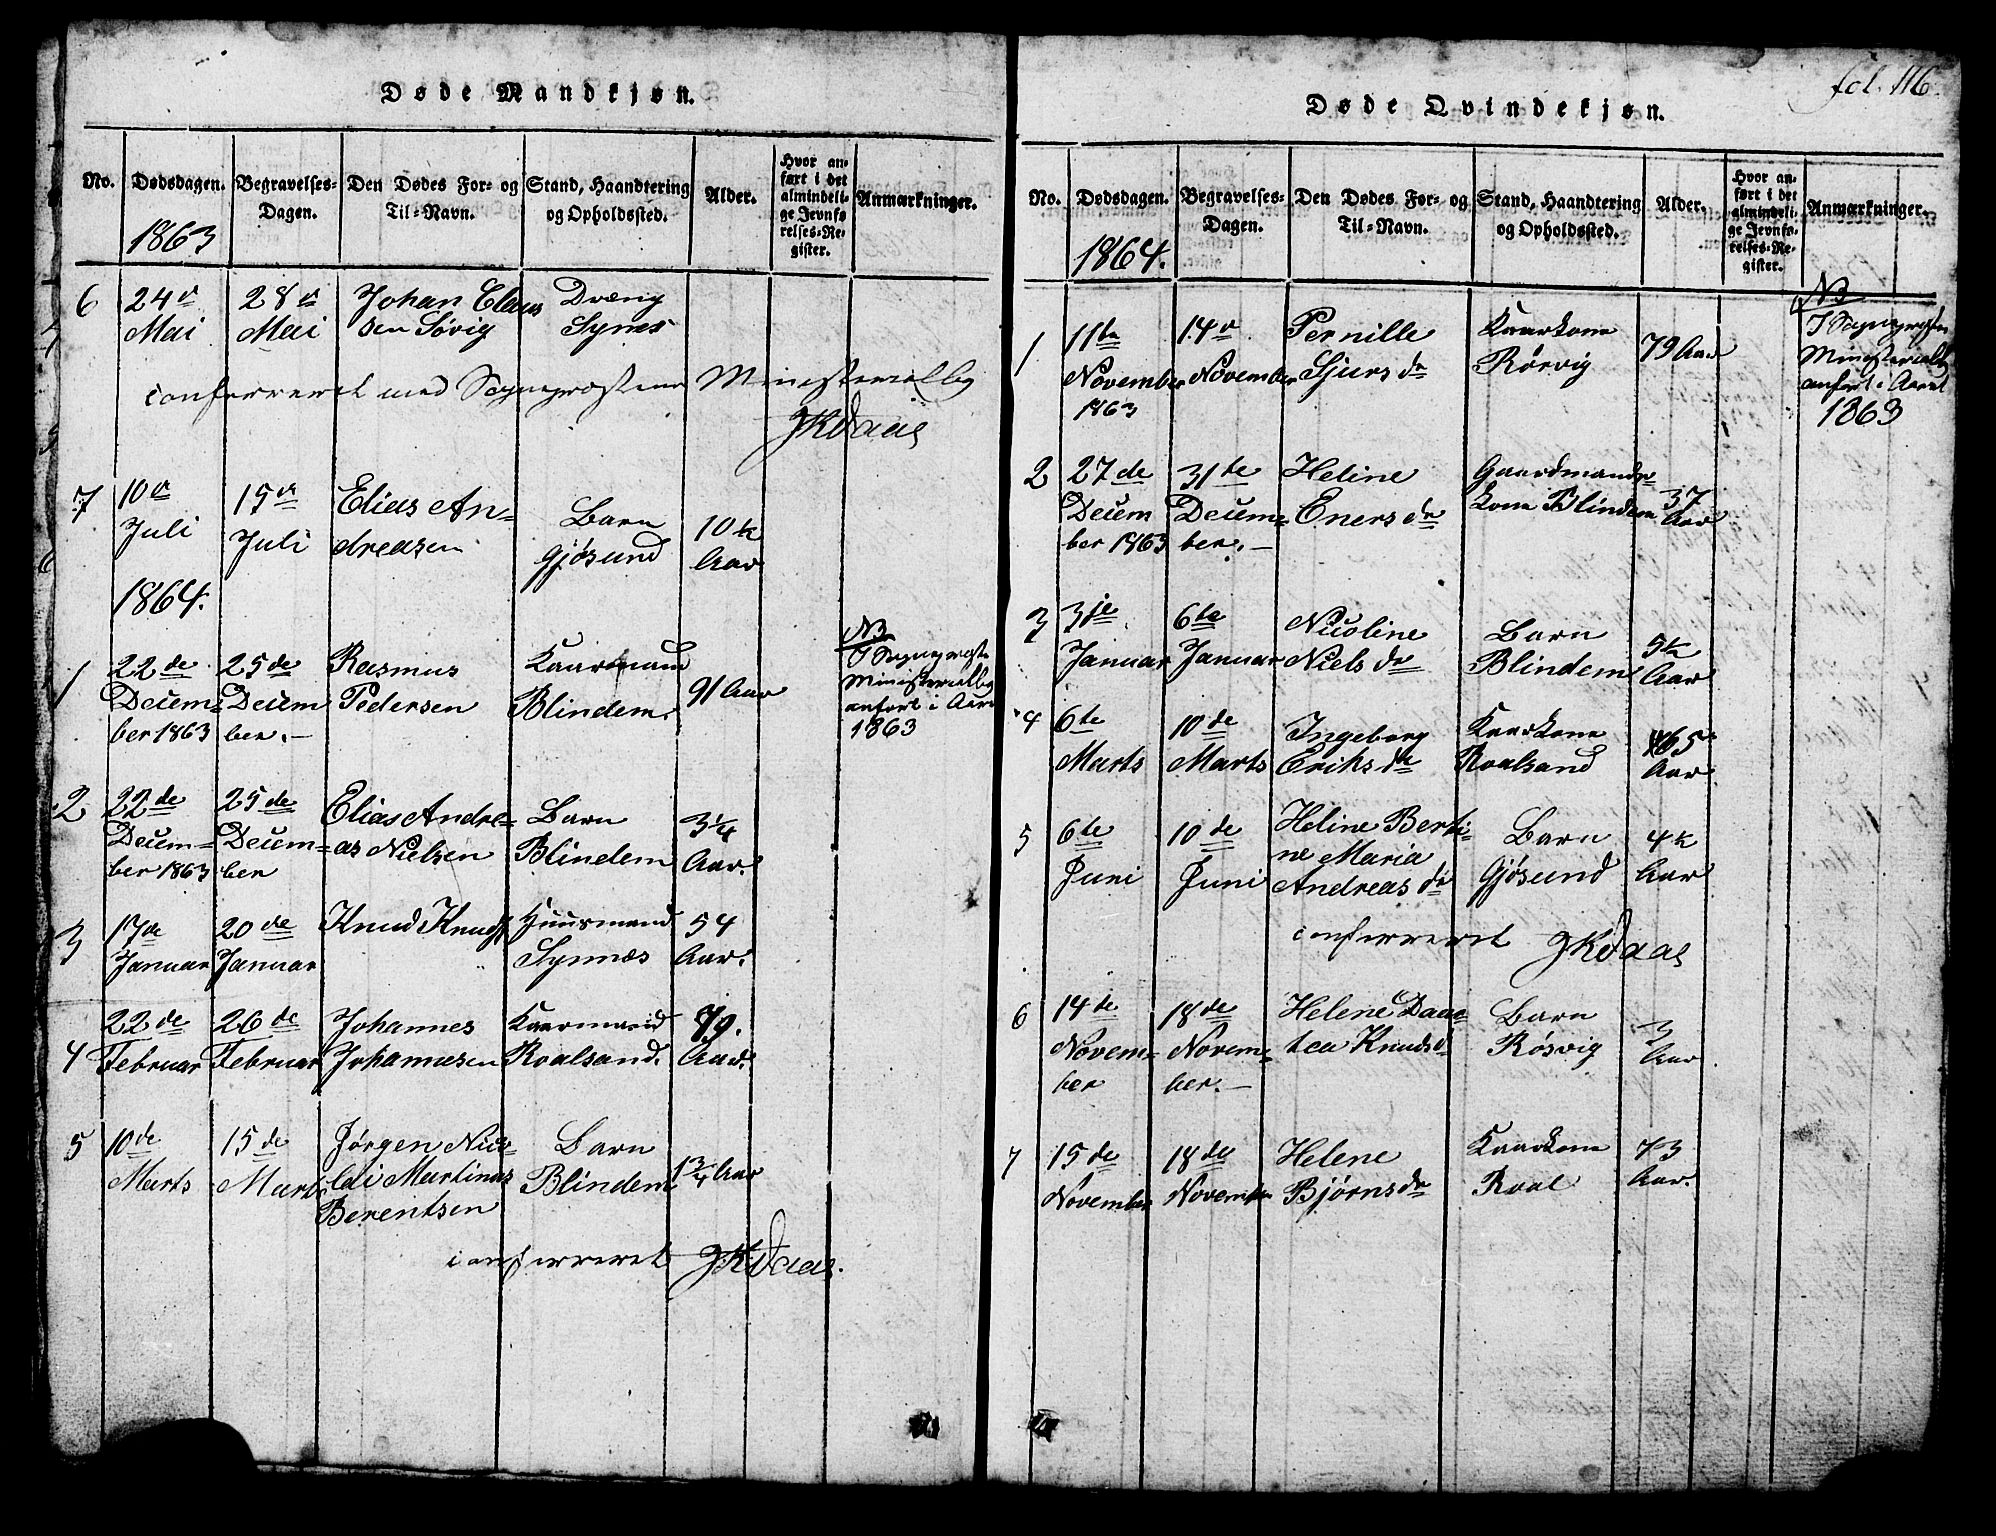 fol. 116.
Døde Mandkjøn.
No.
Dødsdagen.
Begravelses-
Dagen.
Den Dødes For- og
Til-Navn.
Stand, Haandtering
og Opholdssted.
Alder.
Hvor an-
ført i det
almindeli-
ge Jevnfø
relses-Re-
gister.
Anmærkninger.
1863
6
24d
Mai
28d
Mai
Johan Claus
sen Søvig
Dræng
Synes
conferreret med Sognepræstens Ministerialbog
JKDaae
7
10d
Juli
15d
Juli
Elias An-
dreasen
Barn
Gjøsund
10
Aar
1864.
1
22de
Decem-
ber 1863
25de
Decem
ber.
Rasmus
Pedersen
Kaarmand
Blindem.
91 Aar
NB
I Sognepræstens
Ministerialbog
anført i Aaret
1863
2
22de
Decem-
ber 1863
25de
Decem-
ber
Elias Andre-
as Nielsen
Barn
Blindem
3¼
Aar.
3
17de
Januar
20de
Januar
Knud Knuds
Huusmand
Synnæs
54
Aar.
4
22de
Februar
26de
Februar
Johannes
Johannesen
Kaarmand
Roalsand.
79.
Aar.
5
10de
Marts
15de
Marts
Jørgen Nico-
lai Martinus
Berentsen
Barn
Blindem
1¾ Aar
conferreret JKDaae.
Døde Qvindekjøn.
No.
Dødsdagen.
Begravelses-
Dagen.
Den Dødes For- og
Til-Navn.
Stand, Haandtering
og Opholdssted.
Alder.
Hvor an-
ført i det
almindeli-
ge Jevnfø-
relses-Re-
gister.
Anmærkninger.
1864.
1
11te
November
1863
14d
November
Pernille
Sjursdr
Kaarkone
Rørvig
79 Aar
NB
I Sognepræstens
Ministerialbog
anført i Aaret
1863
2
27de
Decem
ber 1863
31te
Decem-
ber.
Heline
Enersdr
Gaardmands-
kone Blindem
37
Aar
3
3je
Januar
6te
Januar
Nicoline
Nielsdr
Barn
Blindem
5
Aar
4
6te
Marts
10de
Marts
Ingeborg
Eriksdr
Kaarkone
Roalsand
65
Aar
5
6te
Juni
10de
Juni
Heline Berti-
ne Maria
Andreasdr
Barn
Gjøsund
4
Aar
conferreret JKDaae
6
14de
Novem-
ber
18de
Novem-
ber.
Helene
Knudsd
Barn
Røsvig
3
Aar
7
15de
November
18de
November
Helene
Bjørnsdr
Kaarkone
Roal
73
Aar.